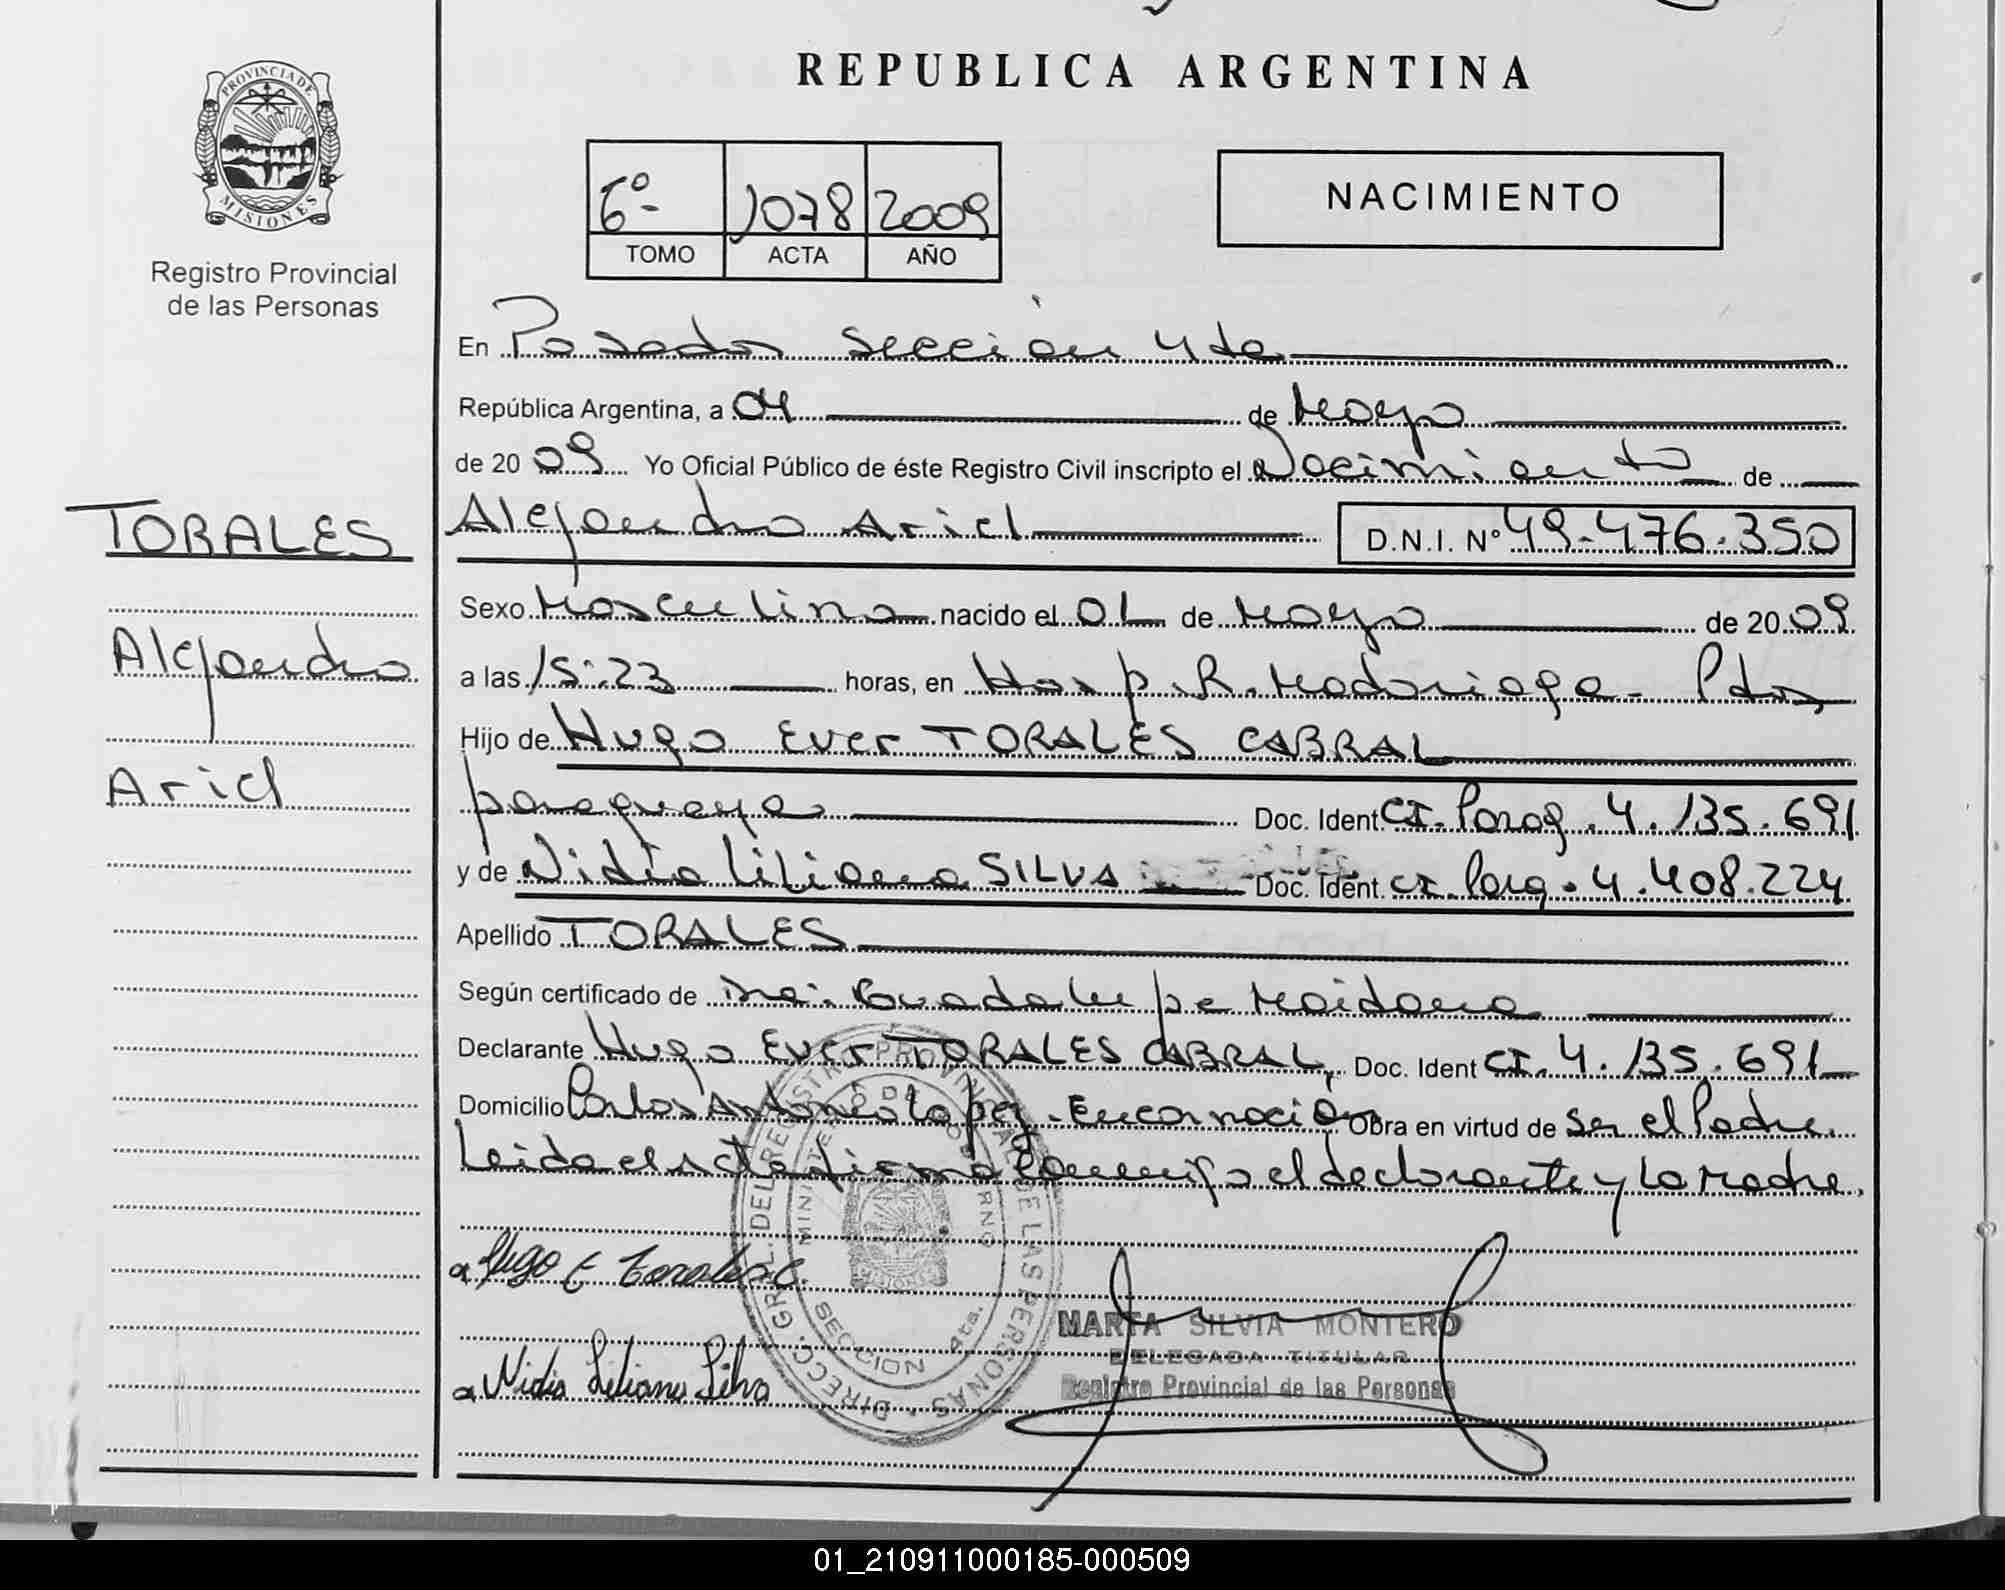 REPUBLICA ARGENTINA
PROVINCIA DE
MISIONES
Registro Provincial
de las Personas
6º- 1078 2009
TOMO ACTA AÑO
NACIMIENTO
En Posadas Sección 4ta
República Argentina, a 04 de Mayo
de 2009 Yo Oficial Público de éste Registro Civil inscripto el Nacimiento de
TORALES
Alejandro
Ariel
Alejandro Ariel D.N.I. Nº 49.476.350
Sexo Masculino nacido el 01 de Mayo de 2009
a las 15:23 horas, en Hosp. R. Madariaga - Pdas
Hijo de Hugo Ever TORALES CABRAL
paraguaya Doc. Ident. CI. Parag. 4.135.691
y de Nidia Liliana SILVA Doc. Ident. CI. Parg. 4.408.224
Apellido TORALES
Según certificado de Dra. Guadalupe Maidana
Declarante Hugo Ever TORALES CABRAL, Doc. Ident CI. 4.135.691
Domicilio Carlos Antonio Lopez - Encarnación Obra en virtud de ser el Padre.
Leida el acta firma conmigo el declarante y la Madre.
a Hugo E Torales C.
a Nidia Liliana Silva
DIRECC. GRAL. DEL REGISTRO PROVINCIAL DE LAS PERSONAS
MINISTERIO DE GOBIERNO
SECCION 4ta.
MISIONES
MARTA SILVIA MONTERO
DELEGADA TITULAR
Registro Provincial de las Personas
01_210911000185-000509